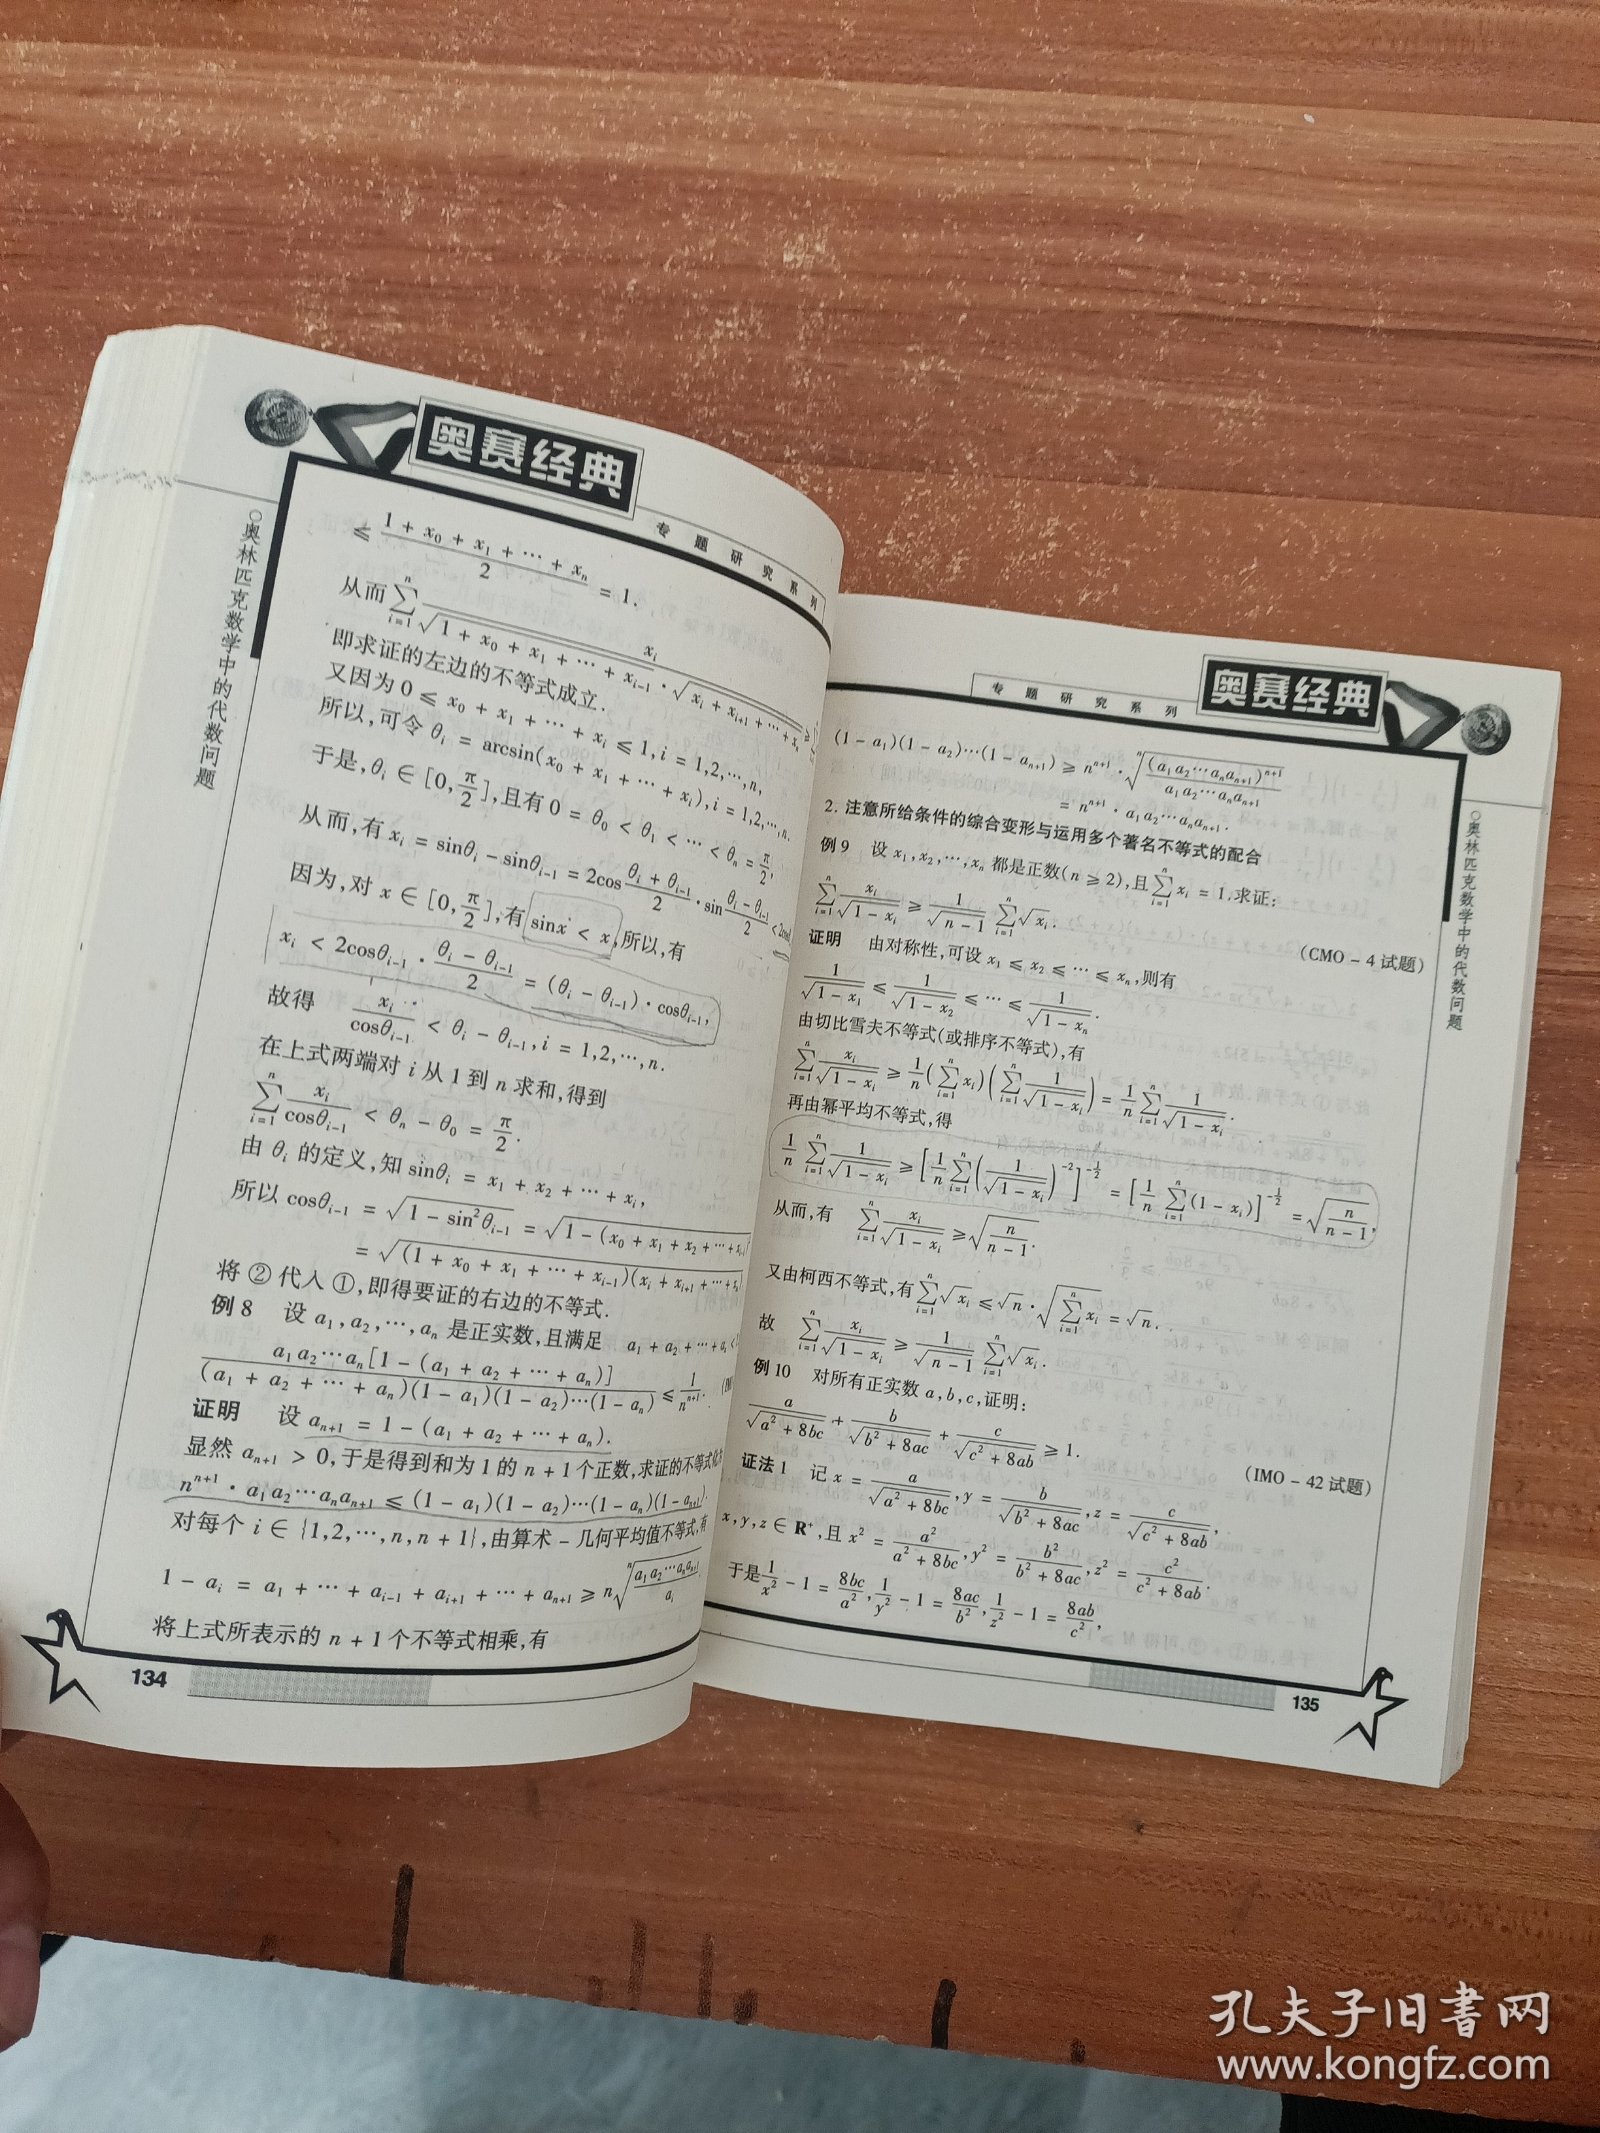 奥赛经典
专题研究系列
○奥林匹克数学中的代数问题
≤ (1 + x₀ + x₁ + ⋯ + xₙ)/2 = 1.
从而 ∑ᵢ₌₁ⁿ xᵢ/(√(1 + x₀ + x₁ + ⋯ + xᵢ₋₁) · √(xᵢ + xᵢ₊₁ + ⋯ + xₙ)) ≥
即求证的左边的不等式成立.
又因为 0 ≤ x₀ + x₁ + ⋯ + xᵢ ≤ 1, i = 1,2,⋯,n,
所以,可令 θᵢ = arcsin(x₀ + x₁ + ⋯ + xᵢ), i = 1,2,⋯,n.
于是, θᵢ ∈ [0, π/2], 且有 0 = θ₀ < θ₁ < ⋯ < θₙ = π/2,
从而,有 xᵢ = sinθᵢ − sinθᵢ₋₁ = 2cos (θᵢ + θᵢ₋₁)/2 · sin (θᵢ − θᵢ₋₁)/2 <
因为,对 x ∈ [0, π/2], 有 sinx < x, 所以,有
xᵢ < 2cosθᵢ₋₁ · (θᵢ − θᵢ₋₁)/2 = (θᵢ − θᵢ₋₁) · cosθᵢ₋₁,
故得 xᵢ/cosθᵢ₋₁ < θᵢ − θᵢ₋₁, i = 1,2,⋯,n.
在上式两端对 i 从 1 到 n 求和,得到
∑ᵢ₌₁ⁿ xᵢ/cosθᵢ₋₁ < θₙ − θ₀ = π/2.
由 θᵢ 的定义,知 sinθᵢ = x₁ + x₂ + ⋯ + xᵢ,
所以 cosθᵢ₋₁ = √(1 − sin²θᵢ₋₁) = √(1 − (x₀ + x₁ + x₂ + ⋯ +
= √((1 + x₀ + x₁ + ⋯ + xᵢ₋₁)(xᵢ + xᵢ₊₁ + ⋯ + xₙ)
将 ② 代入 ①,即得要证的右边的不等式.
例 8 设 a₁,a₂,⋯,aₙ 是正实数,且满足 a₁ + a₂ + ⋯ + aₙ <
a₁a₂⋯aₙ[1 − (a₁ + a₂ + ⋯ + aₙ)]/((a₁ + a₂ + ⋯ + aₙ)(1 − a₁)(1 − a₂)⋯(1 − aₙ)) ≤ 1/nⁿ⁺¹.
证明 设 aₙ₊₁ = 1 − (a₁ + a₂ + ⋯ + aₙ).
显然 aₙ₊₁ > 0,于是得到和为 1 的 n + 1 个正数,求证的不等式化为
nⁿ⁺¹ · a₁a₂⋯aₙaₙ₊₁ ≤ (1 − a₁)(1 − a₂)⋯(1 − aₙ)(1 − aₙ₊₁).
对每个 i ∈ {1,2,⋯,n,n + 1},由算术 – 几何平均值不等式,有
1 − aᵢ = a₁ + ⋯ + aᵢ₋₁ + aᵢ₊₁ + ⋯ + aₙ₊₁ ≥ n ⁿ√(a₁a₂⋯aₙaₙ₊₁/aᵢ).
将上式所表示的 n + 1 个不等式相乘,有
134
专题研究系列
奥赛经典
○奥林匹克数学中的代数问题
(1 − a₁)(1 − a₂)⋯(1 − aₙ₊₁) ≥ nⁿ⁺¹ · ⁿ√((a₁a₂⋯aₙaₙ₊₁)ⁿ⁺¹/(a₁a₂⋯aₙaₙ₊₁))
= nⁿ⁺¹ · a₁a₂⋯aₙaₙ₊₁.
2. 注意所给条件的综合变形与运用多个著名不等式的配合
例 9 设 x₁,x₂,⋯,xₙ 都是正数(n ≥ 2),且 ∑ᵢ₌₁ⁿ xᵢ = 1.求证:
∑ᵢ₌₁ⁿ xᵢ/√(1 − xᵢ) ≥ 1/√(n − 1) ∑ᵢ₌₁ⁿ √xᵢ.
(CMO – 4 试题)
证明 由对称性,可设 x₁ ≤ x₂ ≤ ⋯ ≤ xₙ,则有
1/√(1 − x₁) ≤ 1/√(1 − x₂) ≤ ⋯ ≤ 1/√(1 − xₙ).
由切比雪夫不等式(或排序不等式),有
∑ᵢ₌₁ⁿ xᵢ/√(1 − xᵢ) ≥ 1/n (∑ᵢ₌₁ⁿ xᵢ)(∑ᵢ₌₁ⁿ 1/√(1 − xᵢ)) = 1/n ∑ᵢ₌₁ⁿ 1/√(1 − xᵢ).
再由幂平均不等式,得
1/n ∑ᵢ₌₁ⁿ 1/√(1 − xᵢ) ≥ [1/n ∑ᵢ₌₁ⁿ (1/√(1 − xᵢ))⁻²]^(−1/2) = [1/n ∑ᵢ₌₁ⁿ (1 − xᵢ)]^(−1/2) = √(n/(n − 1)),
从而,有 ∑ᵢ₌₁ⁿ xᵢ/√(1 − xᵢ) ≥ √(n/(n − 1)).
又由柯西不等式,有 ∑ᵢ₌₁ⁿ √xᵢ ≤ √n · √(∑ᵢ₌₁ⁿ xᵢ) = √n.
故 ∑ᵢ₌₁ⁿ xᵢ/√(1 − xᵢ) ≥ 1/√(n − 1) ∑ᵢ₌₁ⁿ √xᵢ.
例 10 对所有正实数 a,b,c,证明:
a/√(a² + 8bc) + b/√(b² + 8ac) + c/√(c² + 8ab) ≥ 1.
(IMO – 42 试题)
证法 1 记 x = a/√(a² + 8bc), y = b/√(b² + 8ac), z = c/√(c² + 8ab),
x,y,z ∈ R⁺,且 x² = a²/(a² + 8bc), y² = b²/(b² + 8ac), z² = c²/(c² + 8ab).
于是 1/x² − 1 = 8bc/a², 1/y² − 1 = 8ac/b², 1/z² − 1 = 8ab/c²,
135
孔夫子旧书网
www.kongfz.com